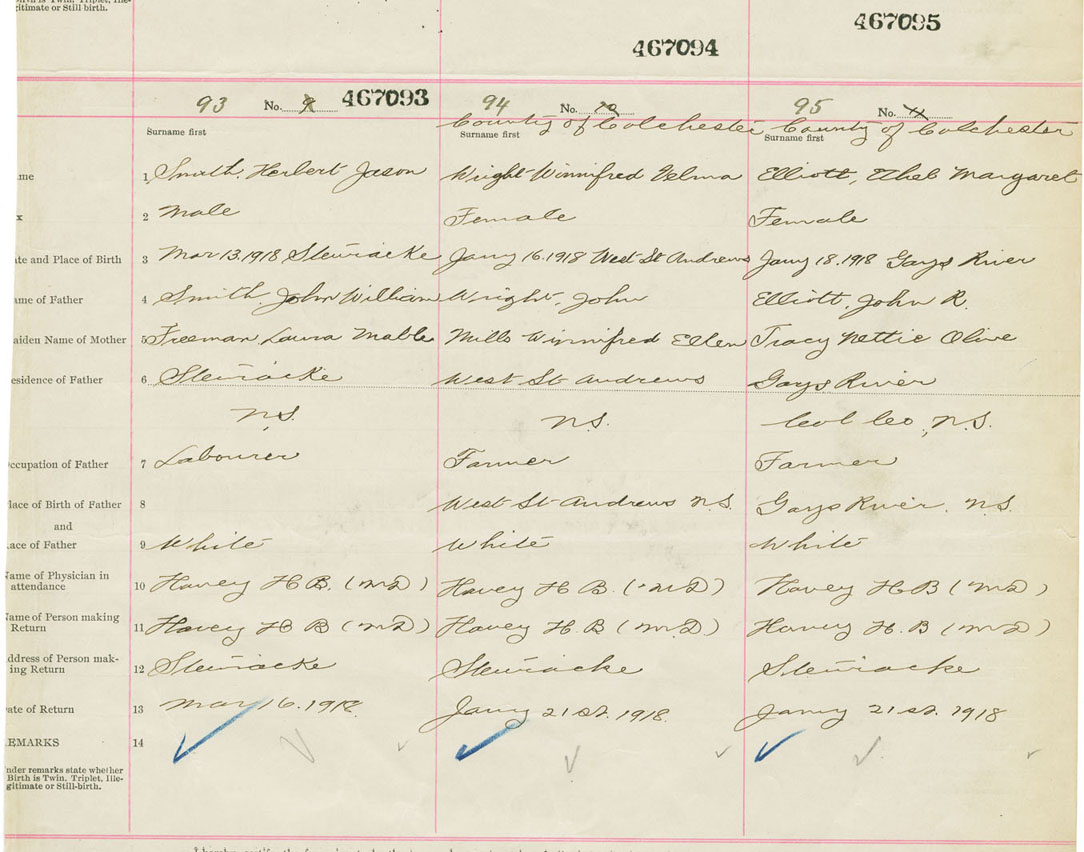 gitimate or Still birth.
467094
467095
93 No. 9 467093 94 No. 10 95 No. 11
County of Colchester County of Colchester
Surname first Surname first Surname first
me 1 Smith, Herbert Jason Wright Winnifred Velma Elliott, Ethel Margaret
x 2 Male Female Female
ate and Place of Birth 3 Mar 13, 1918 Stewiacke Jany 16. 1918 West St Andrews Jany 18. 1918 Gays River
ame of Father 4 Smith, John William Wright, John Elliott, John R.
aiden Name of Mother 5 Freeman Laura Mable Mills Winnifred Ellen Tracy Nettie Olive
esidence of Father 6 Stewiacke West St Andrews Gays River
N.S. N.S. Col Co., N.S.
ccupation of Father 7 Labourer Farmer Farmer
lace of Birth of Father 8 West St Andrews N.S. Gays River. N.S.
and
ace of Father 9 White White White
Name of Physician in
attendance 10 Havey H B. (MD) Havey H B. (MD) Havey H B (MD)
Name of Person making
Return 11 Havey H B (MD) Havey H. B (M.D) Havey H. B (MD)
ddress of Person mak-
ing Return 12 Stewiacke Stewiacke Stewiacke
ate of Return 13 Mar 16. 1918. Jany 21 st. 1918. Jany 21 st. 1918
EMARKS 14
nder remarks state whether
Birth is Twin, Triplet, Ille-
gitimate or Still-birth.